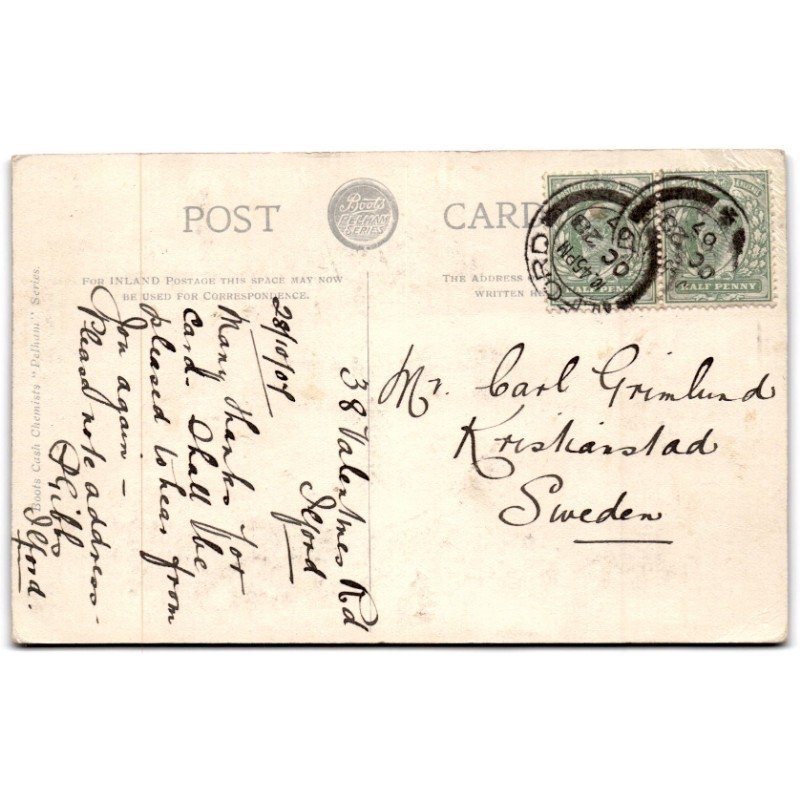 POST
Boots
PELHAM
SERIES
CARD
FOR INLAND POSTAGE THIS SPACE MAY NOW
BE USED FOR CORRESPONDENCE.
THE ADDRESS
WRITTEN
Boots Cash Chemists "Pelham" Series.
38 Valentines Rd
Ilford
28/10/07
Many thanks for
card. Shall be
pleased to hear from
you again –
Please note address –
Gibbs
Ilford.
Mr. Carl Grimlund
Kristianstad
Sweden
ILFORD
10.45 PM
OC 28
07
OC 28
07
POSTAGE
HALF PENNY
HALF PENNY